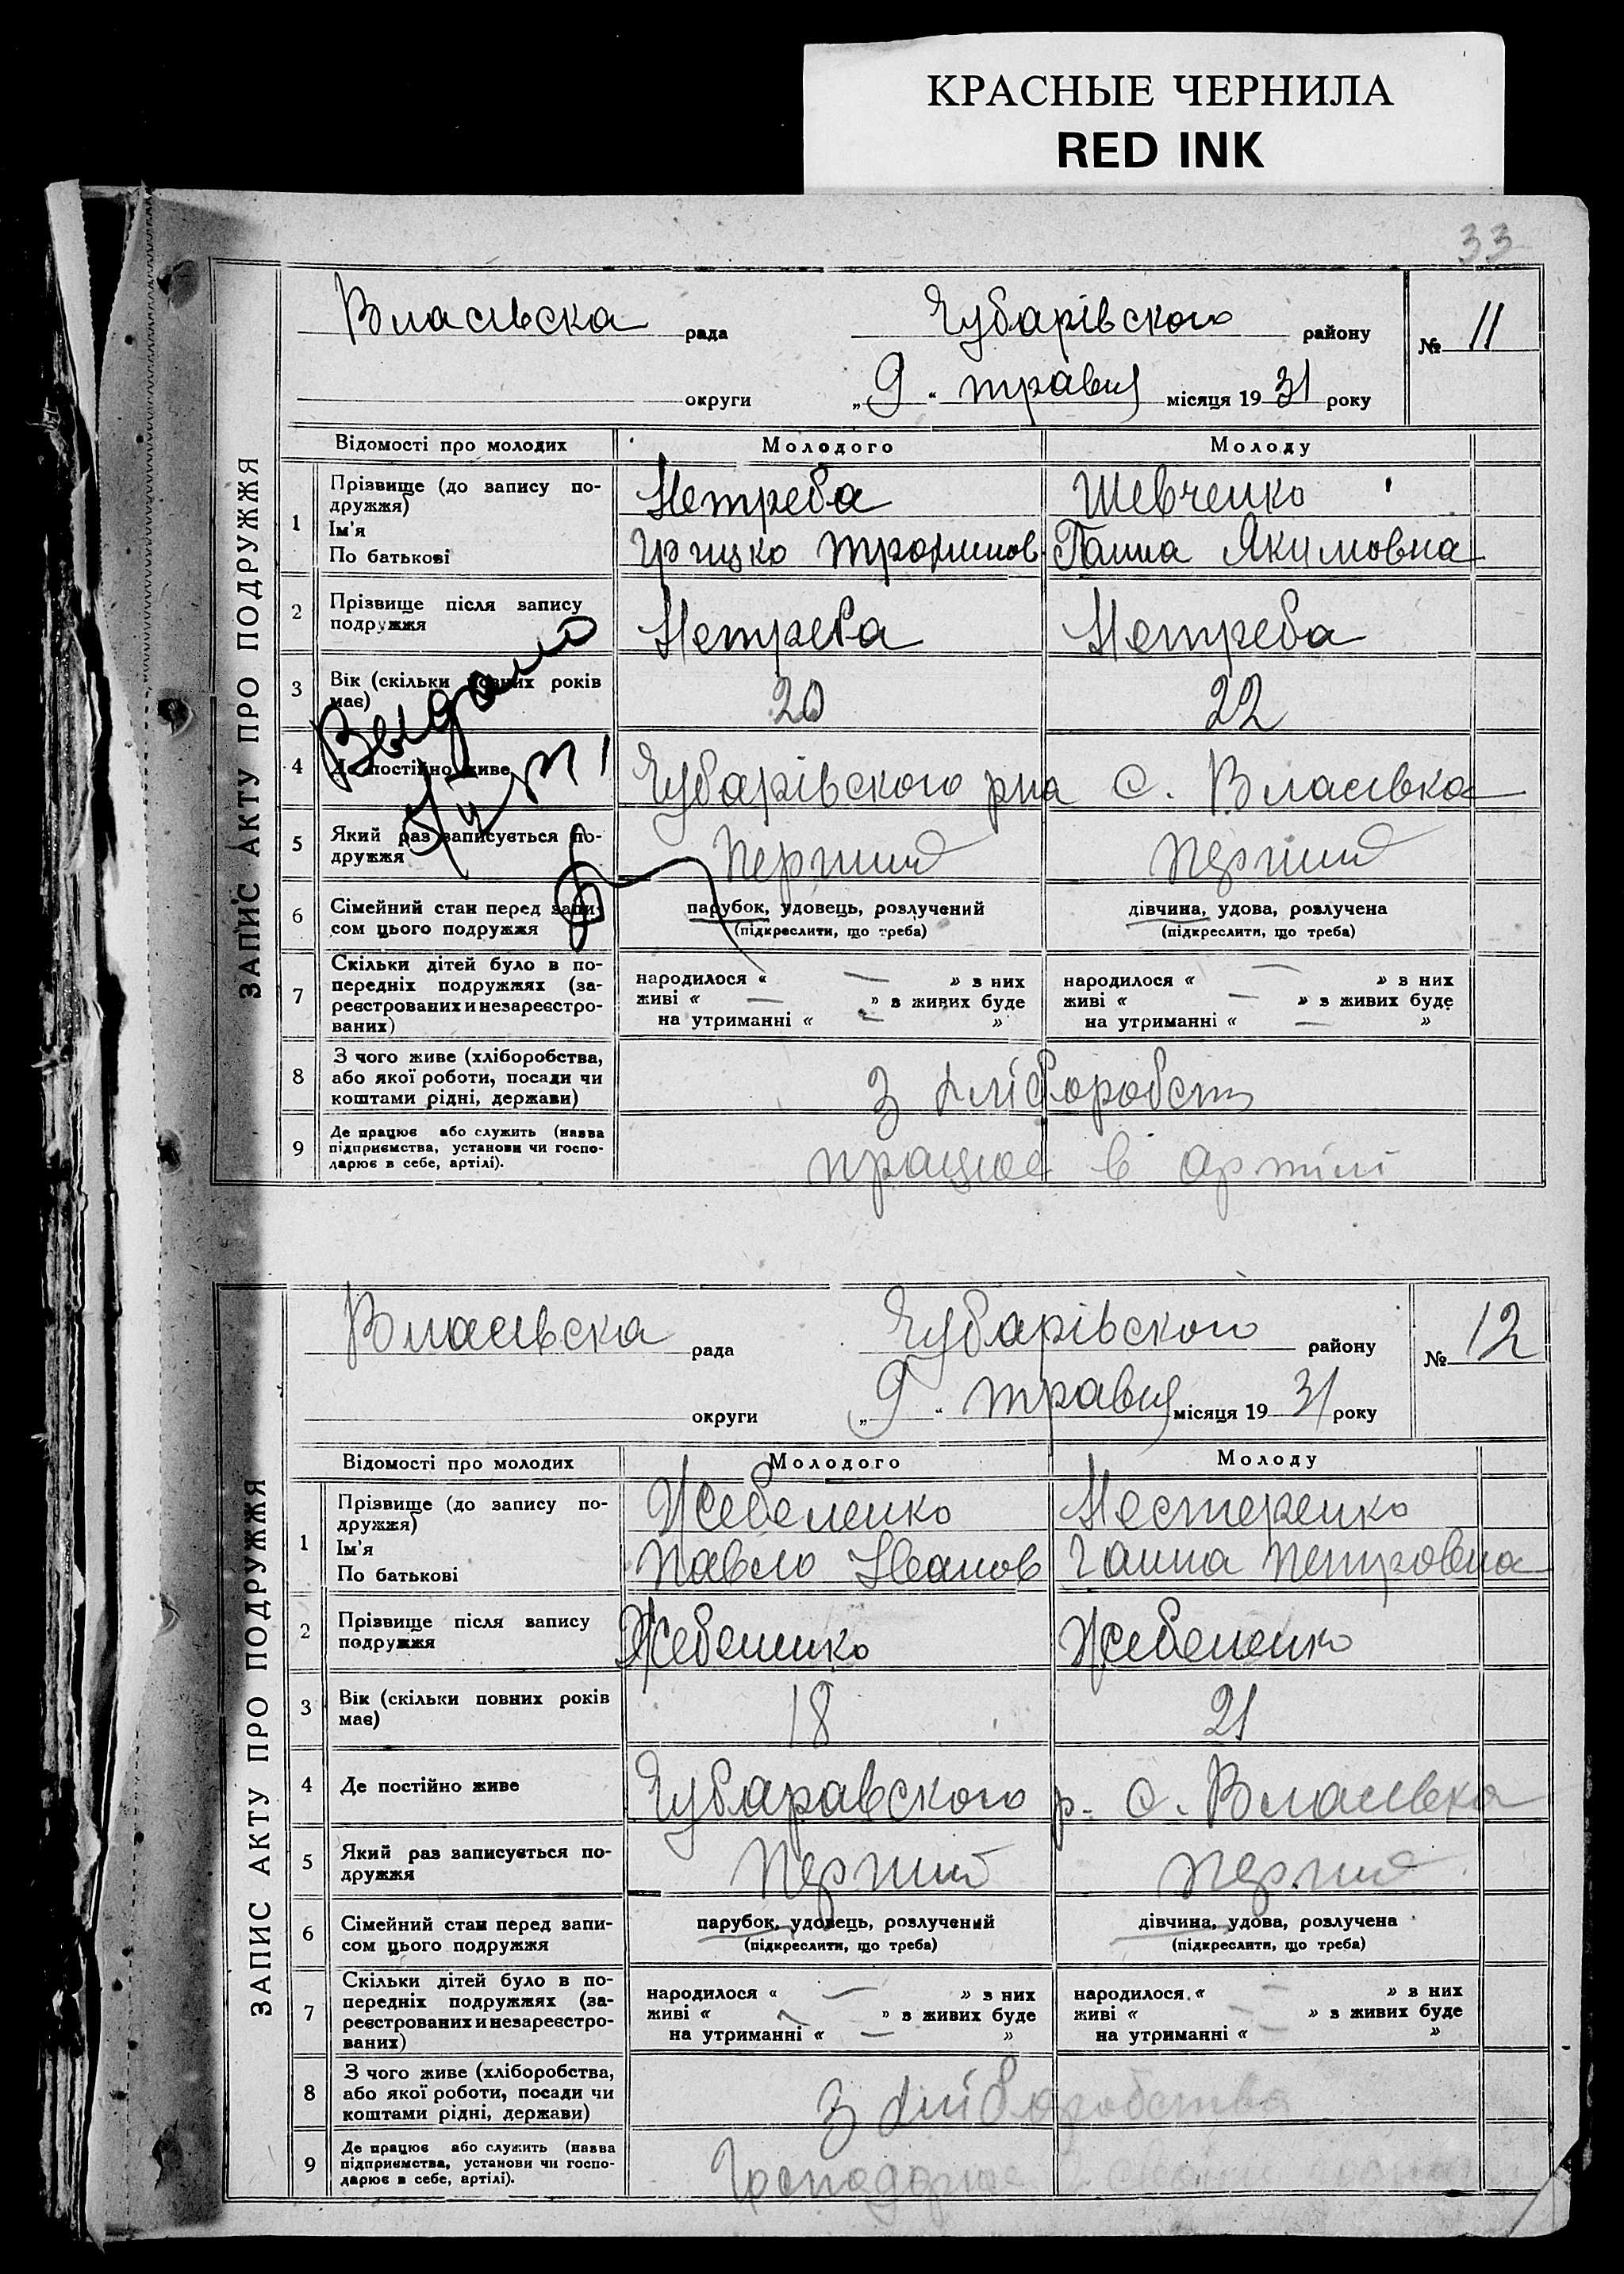 КРАСНЫЕ ЧЕРНИЛА
RED INK
33
ЗАПИС АКТУ ПРО ПОДРУЖЖЯ
Власівска рада Чубарівского району № 11
округи „9“ травня місяця 1931 року
Відомості про молодих Молодого Молоду
1 Прізвище (до запису по-
дружжя) Нетреба Шевченко
Ім'я
По батькові Грицко Трохимов Ганна Якимовна
2 Прізвище після запису
подружжя Нетреба Нетреба
3 Вік (скільки повних років
має) 20 22
Выдано
4 Де постійно живе Чубарівского рна с. Власівка
5 Який раз записується по-
дружжя Перший Перший
6 Сімейний стан перед запи-
сом цього подружжя парубок, удовець, розлучений дівчина, удова, розлучена
(підкреслити, що треба) (підкреслити, що треба)
7 Скільки дітей було в по-
передніх подружжях (за-
реєстрованих и незареєстро-
ваних)
народилося « — » з них народилося « — » з них
живі « — » з живих буде живі « — » з живих буде
на утриманні « — » на утриманні « — »
8 З чого живе (хліборобства,
або якої роботи, посади чи
коштами рідні, держави) З хліборобств
9 Де працює або служить (назва
підприємства, установи чи госпо-
дарює в себе, артілі). працює в артілі
ЗАПИС АКТУ ПРО ПОДРУЖЖЯ
Власівска рада Чубарівского району № 12
округи „9“ травня місяця 1931 року
Відомості про молодих Молодого Молоду
1 Прізвище (до запису по-
дружжя) Жебеленко Нестеренко
Ім'я
По батькові Павло Іванов Ганна Петровна
2 Прізвище після запису
подружжя Жебеленко Жебеленко
3 Вік (скільки повних років
має) 18 21
4 Де постійно живе Чубаравского р- с. Власівка
5 Який раз записується по-
дружжя Перший Перший
6 Сімейний стан перед запи-
сом цього подружжя парубок, удовець, розлучений дівчина, удова, розлучена
(підкреслити, що треба) (підкреслити, що треба)
7 Скільки дітей було в по-
передніх подружжях (за-
реєстрованих и незареєстро-
ваних)
народилося « — » з них народилося « — » з них
живі « — » з живих буде живі « — » з живих буде
на утриманні « — » на утриманні « — »
8 З чого живе (хліборобства,
або якої роботи, посади чи
коштами рідні, держави) З хліборобства
9 Де працює або служить (назва
підприємства, установи чи госпо-
дарює в себе, артілі). Господарює